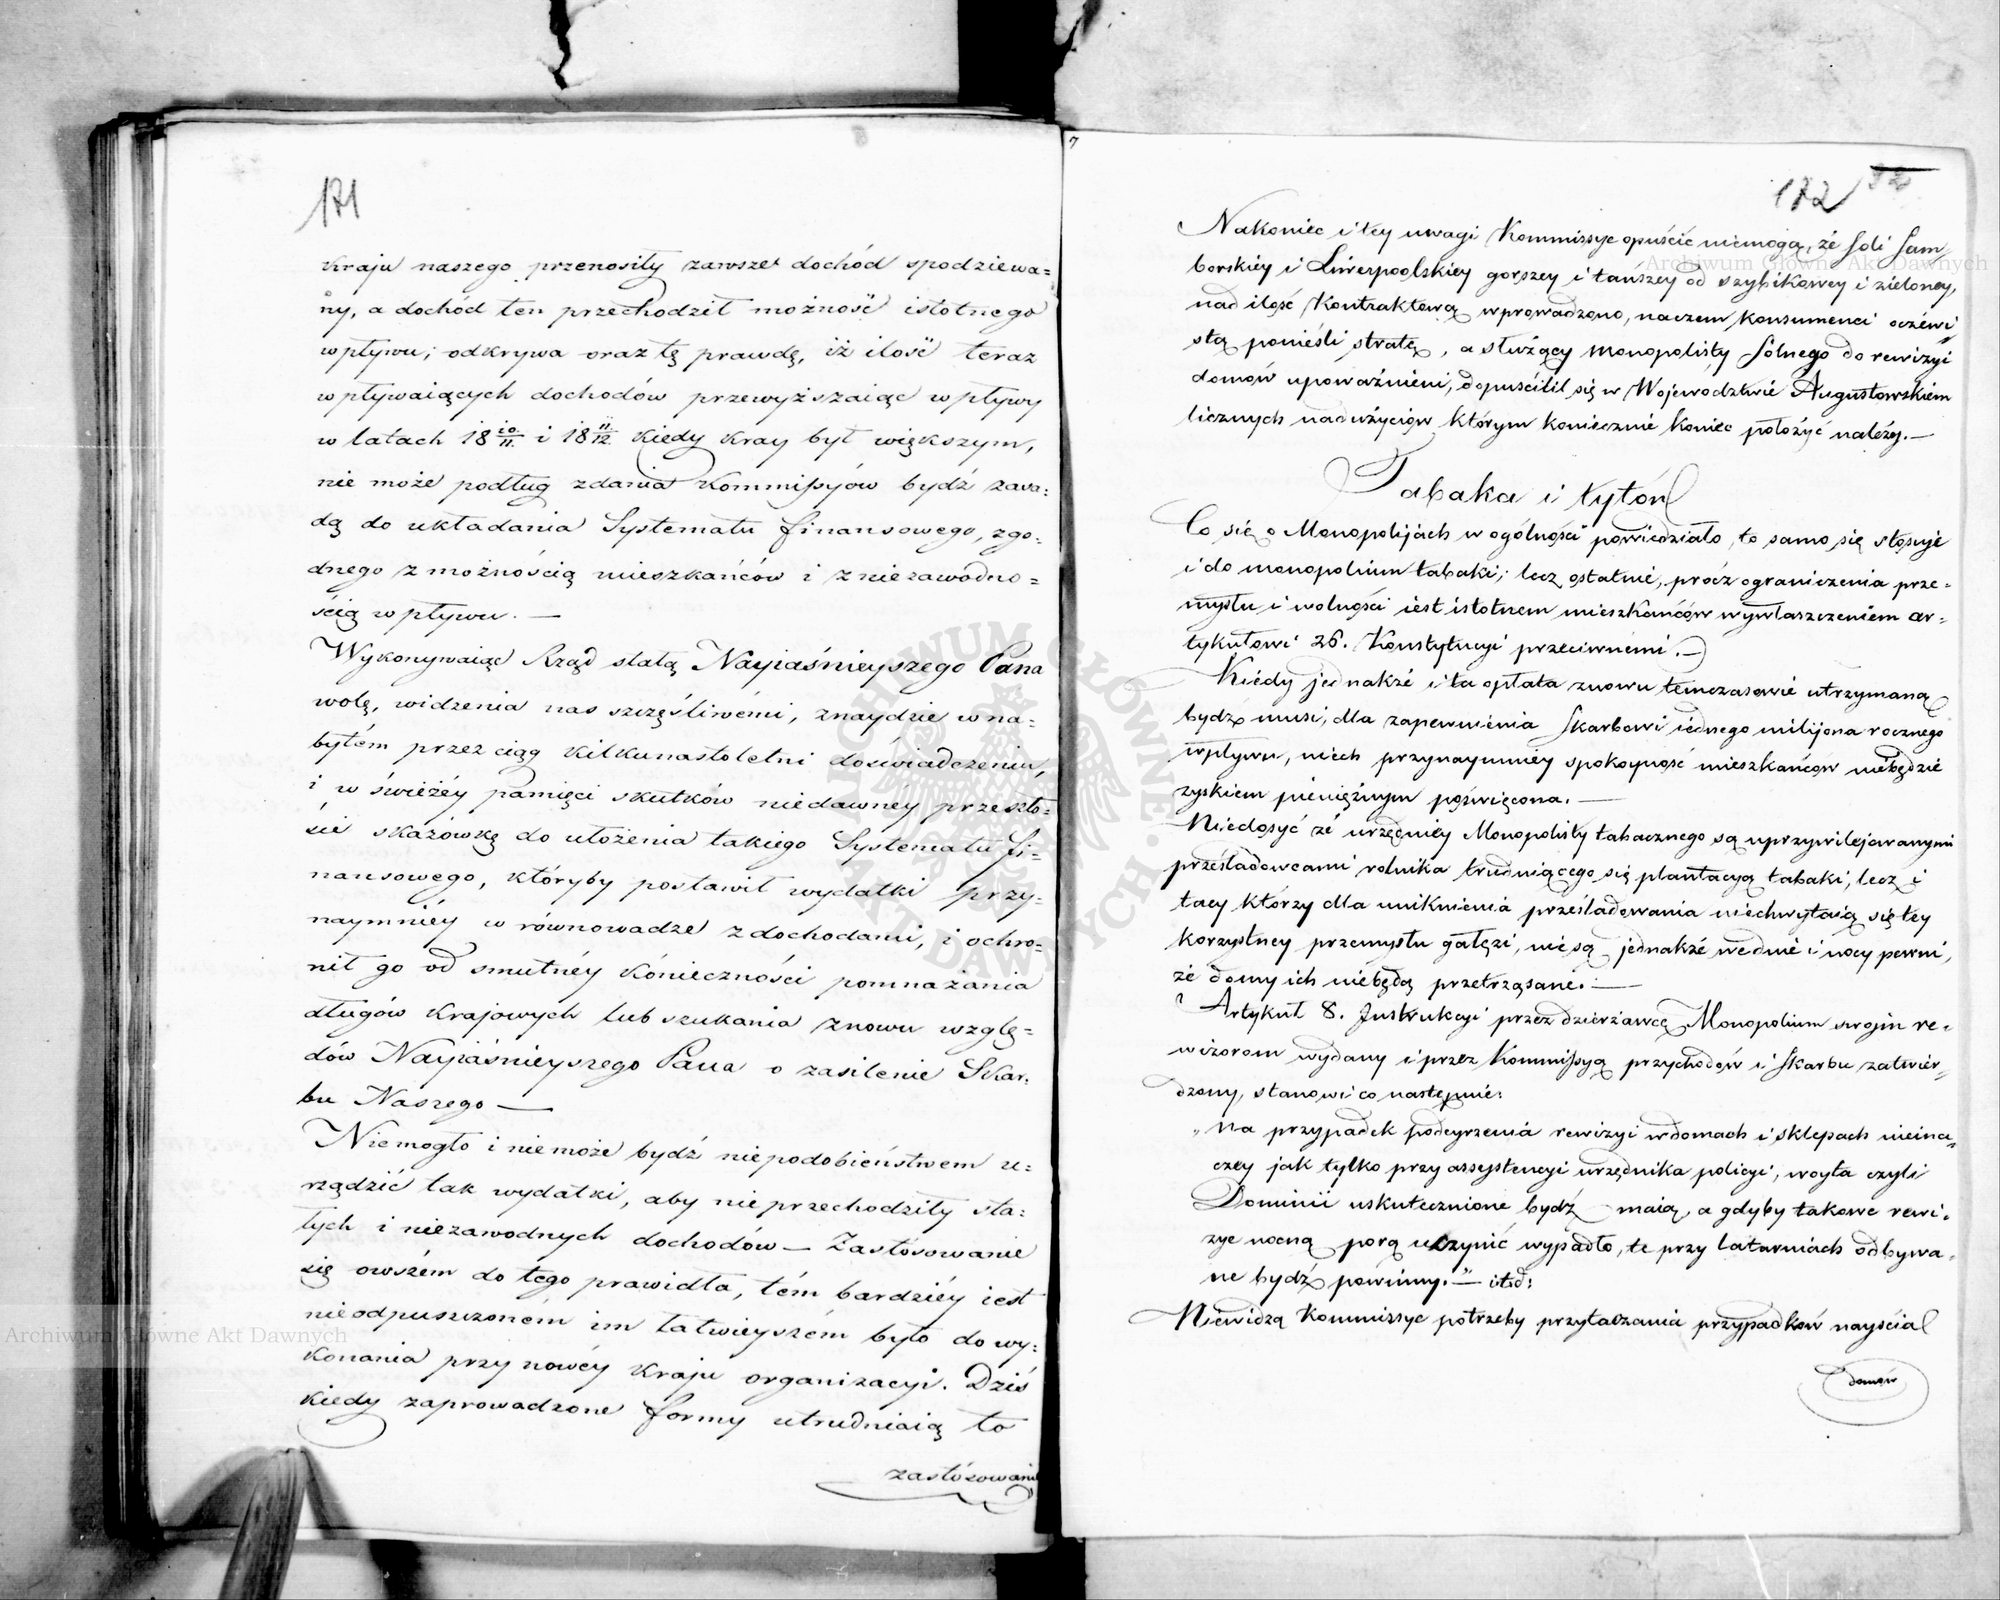 171
kraju naszego przenosiły zawsze dochód spodziewa=
ny, a dochód ten przechodził możność istotnego
wpływu; odkrywa oraz tę prawdę, iż ilość teraz
wpływaiących dochodów przewyższaiąc wpływy
w latach 18 10/11. i 18 11/12 kiedy kray był większym,
nie może podług zdania Kommissyów bydź zasa=
dą do układania Systematu finansowego, zgo=
dnego z możnością mieszkańców i z niezawodno=
ścią wpływu. —
Wykonywaiąc Rząd stałą Nayiaśnieyszego Pana
wolę, widzenia nas szczęśliwémi, znaydzie w na=
bytém przez ciąg kilkunastoletni doświadczeniu,
i w świéżéy pamięci skutków niedawnéy przeszło=
ści skazówkę do ułożenia takiego Systematu fi=
nansowego, któryby postawił wydatki przy=
naymniéy w równowadze z dochodami, i ochro=
nił go od smutnéy konieczności pomnażania
długów krajowych lub szukania znowu wzglę=
dów Nayiaśnieyszego Pana o zasilenie Skar=
bu Naszego —
Niemogło i niemoże bydź niepodobieństwem u=
rządzić tak wydatki, aby nieprzechodziły sta=
łych i niezawodnych dochodów — Zastosowanie
się owszém do tego prawidła, tém bardziéy iest
nieodpuszczoném im łatwieyszém było do wy=
konania przy nowéy kraju organizacyi. Dziś
kiedy zaprowadzone formy utrudniaią to
zastósowanie
7
172
Nakoniec i téy uwagi Kommissye opuścić niemogą, że soli Sam
borskiéy i Liwerpoolskiéy gorszey i tańszey od szybikowey i zieloney,
nad ilość kontraktową wprowadzono, na czem konsumenci oczéwi=
stą ponieśli stratę, a służący monopolisty solnego do rewizyi
domów upoważnieni, dopuścilil się w Województwie Augustowskiem
licznych nadużyciów którym koniecznie koniec położyć należy. —
Tabaka i tytóń
Co się o Monopolijach w ogólności powiedziało, to samo się stosuje
i do monopolium tabaki; lecz ostatnie, prócz ograniczenia prze=
mysłu i wolności iest istotnem mieszkańców wywłaszczeniem ar=
tykułowi 26. Konstytucyi przeciwnémi. —
Kiedy jednakże i ta opłata znowu temczasowie utrzymaną
bydź musi, dla zapewnienia Skarbowi iednego milijona rocznego
wpływu, niech przynaymniéy spokoyność mieszkańców niebędzie
zyskiem pieniężnym poświęcona. —
Niedosyć że urzędnicy Monopolisty tabacznego są uprzywilejowanymi
prześladowcami rolnika trudniącego się plantacyą tabaki, lecz i
tacy którzy dla uniknienia prześladowania niechwytaią się téy
korzystney przemysłu gałęzi, nie są jednakże we dnie i nocy pewni,
że domy ich niebędą przetrząsane. —
Artykuł 8. Instrukcyi przez dzierżawcę Monopolium swojm re=
wizorom wydany i przez Kommissyą przychodów i Skarbu zatwier=
dzony, stanowi co następuie:
„Na przypadek podeyrzenia rewizyi w domach i sklepach nieina=
czey jak tylko przy assystencyi urzędnika policyi, woyta czyli
Dominii uskutecznione bydź maią, a gdyby takowe rewi=
zye nocną porą uczynić wypadło, te przy latarniach odbywa=
ne bydź powinny.” — itd:
Niewidzą Kommissye potrzeby przytaczania przypadków nayścia
domów
Archiwum Główne Akt Dawnych
Archiwum Główne Akt Dawnych
ARCHIWUM GŁÓWNE AKT DAWNYCH